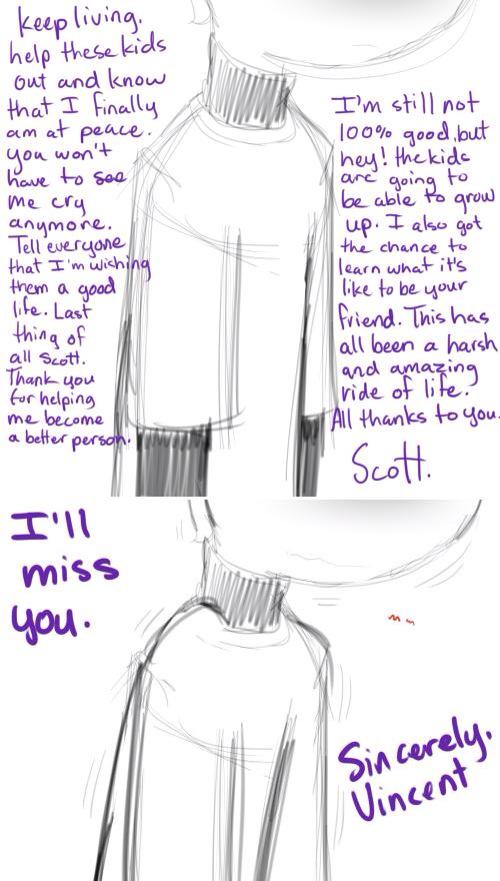 keep living.
help these kids
out and know
that I finally
am at peace.
you won't
have to see
me cry
anymore.
Tell everyone
that I'm wishing
them a good
life. Last
thing of
all Scott.
Thank you
for helping
me become
a better person.
I'm still not
100% good, but
hey! the kids
are going to
be able to grow
up. I also got
the chance to
learn what it's
like to be your
friend. This has
all been a harsh
and amazing
ride of life.
All thanks to you.
Scott.
I'll
miss
you.
Sincerely.
Vincent